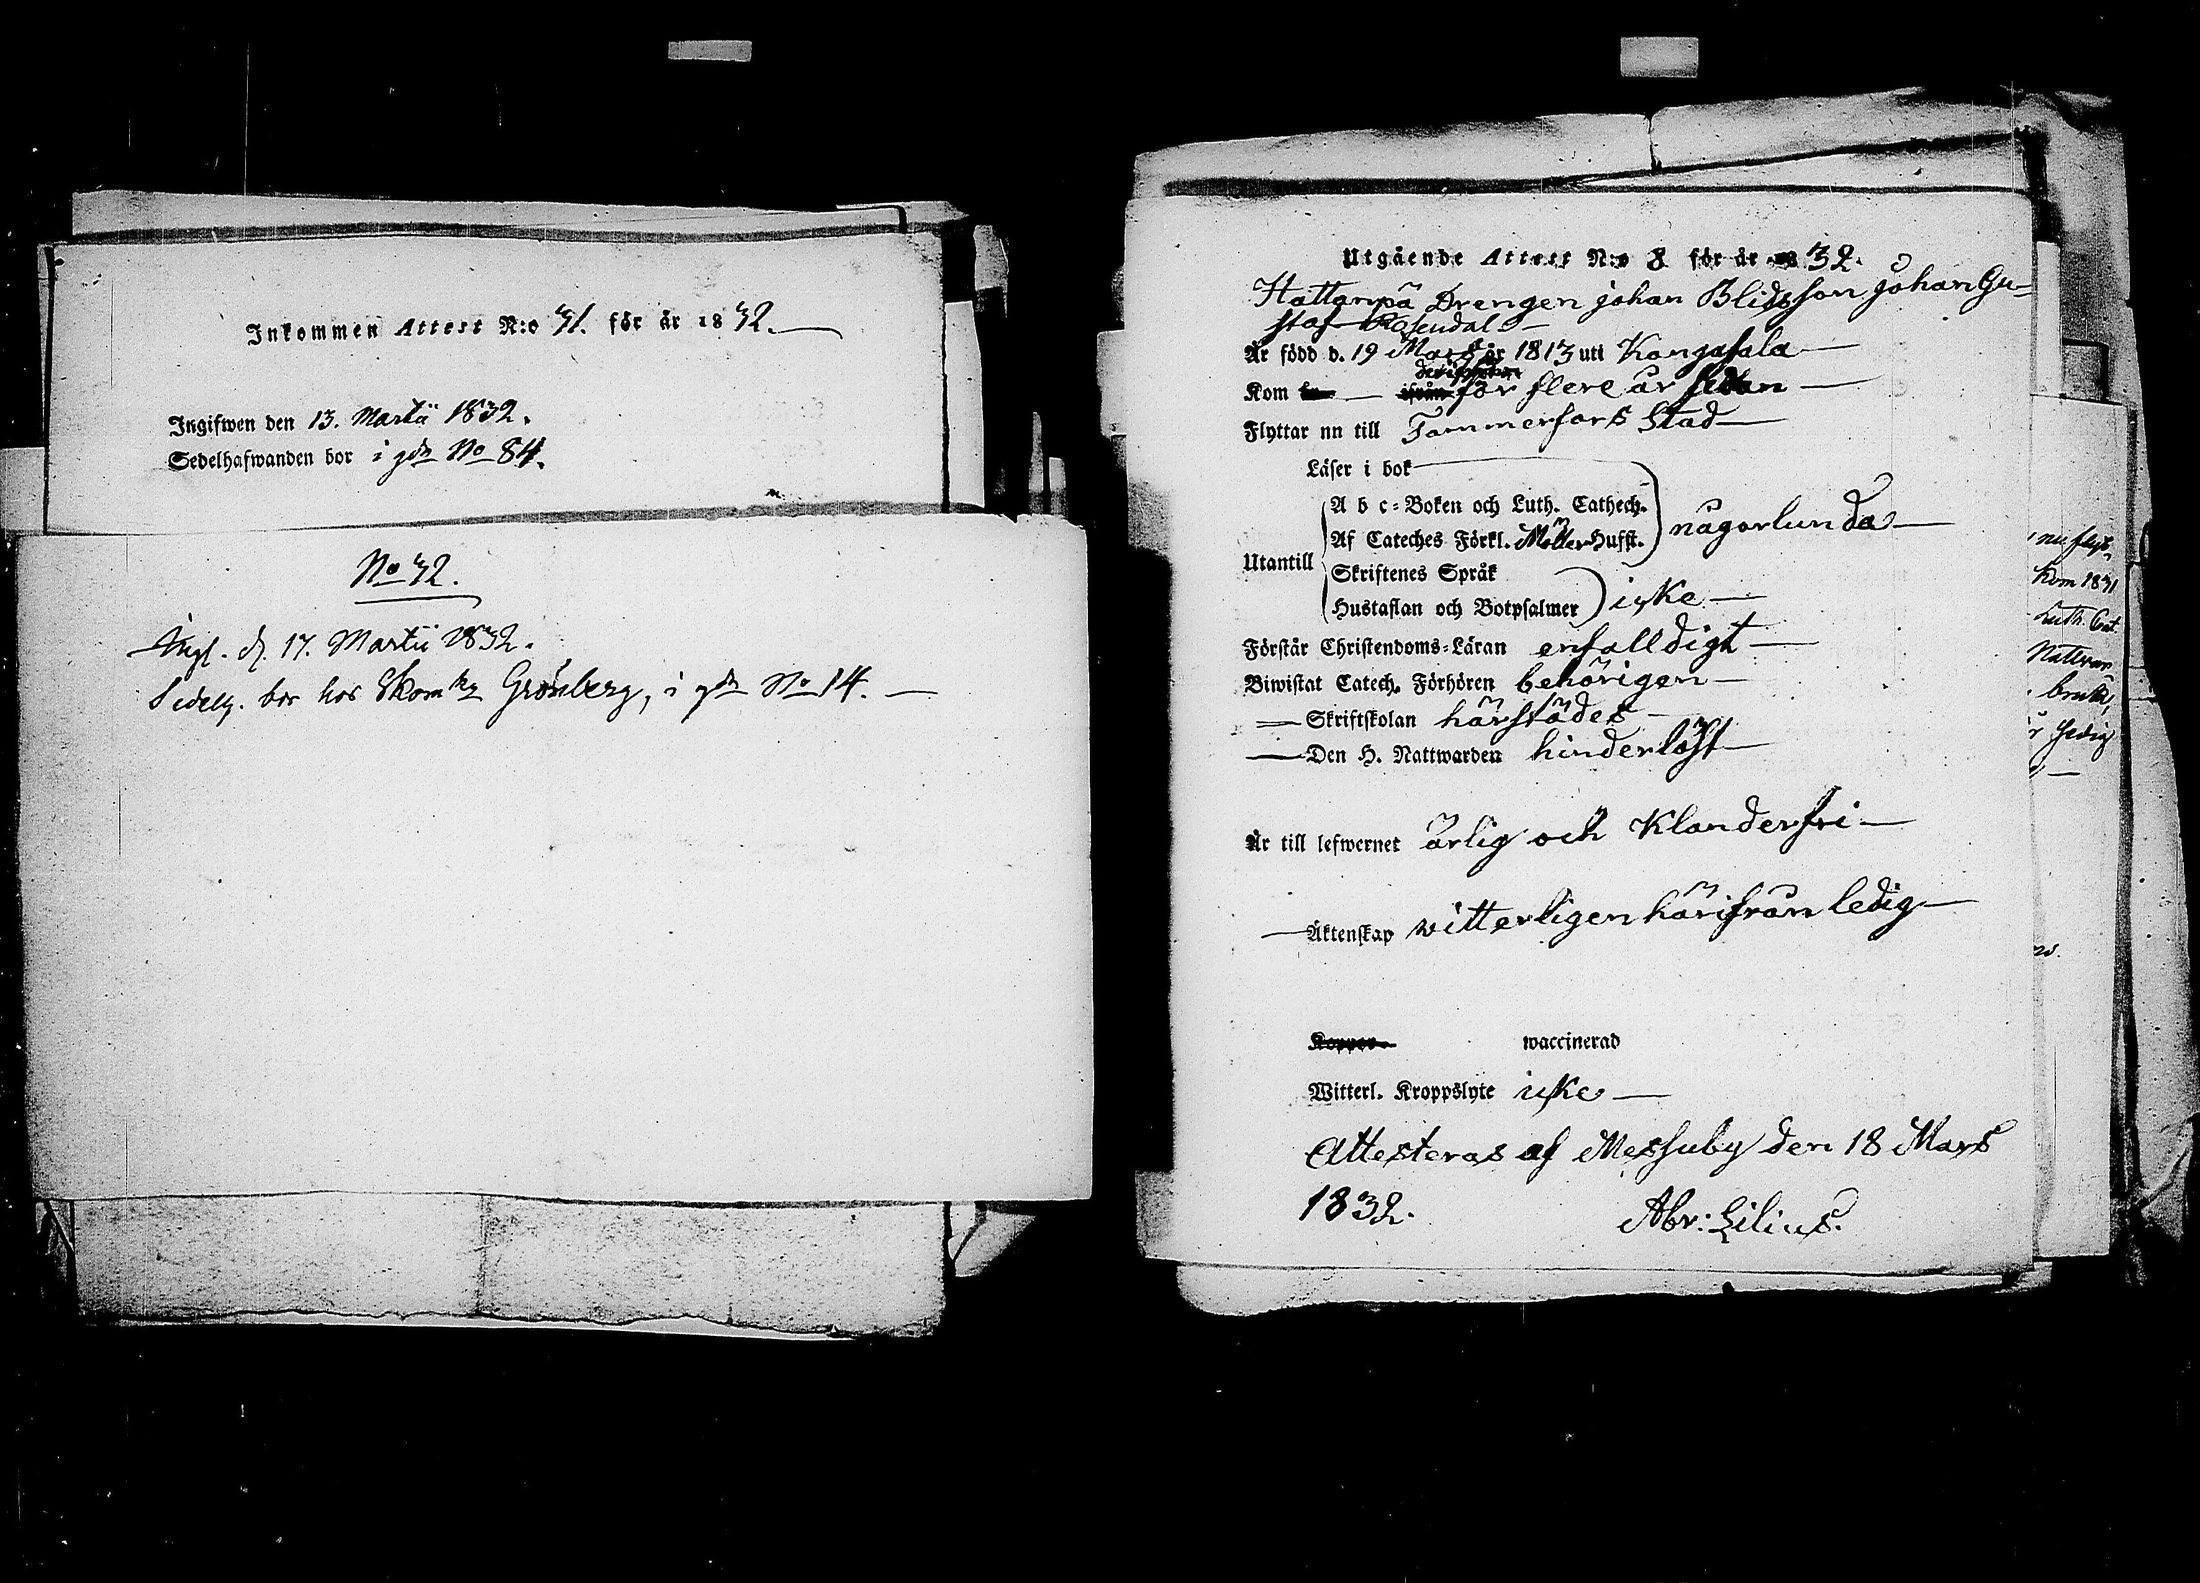 Inkommen Attest N:o 31. för år 1832.
Ingifwen den 13. Martii 1832.
Sedelhafwanden bor i gdn No 84.
No 32.
Ingl. d. 17. Martii 1832.
Sedelh. bor hos Skomkr Grönberg, i gdn No 14.
Utgående Attest N:o 8 för år 1832.
Hattanpä Drengen johan Blidsson johan Gu-
staf Rosendal
Är född d. 19 Mars år 1813 uti Kangasala
Kom för flere år sedan
Flyttar nn till Tammerfors Stad
Läser i bok
A b c-Boken och Luth. Cathech.
Af Cateches Förkl. Möller Hufst. någorlunda
Utantill
Skriftenes Språk
Hustaflan och Botpsalmer icke
Förstår Christendoms-Läran enfalldigt
Biwistat Catech. Förhören behörigen
Skriftskolan härstädes
Den H. Nattwarden hinderlöst
Är till lefwernet ärlig och Klanderfri
Äktenskap witterligen härifrån ledig
Koppor waccinerad
Witterl. Kroppslyte icke
Attesteras af Messuby den 18 Mars
1832. Abr: Lilius.
nu flyt-
Kom 1831
Luth. Cat.
Nattvar-
ledig